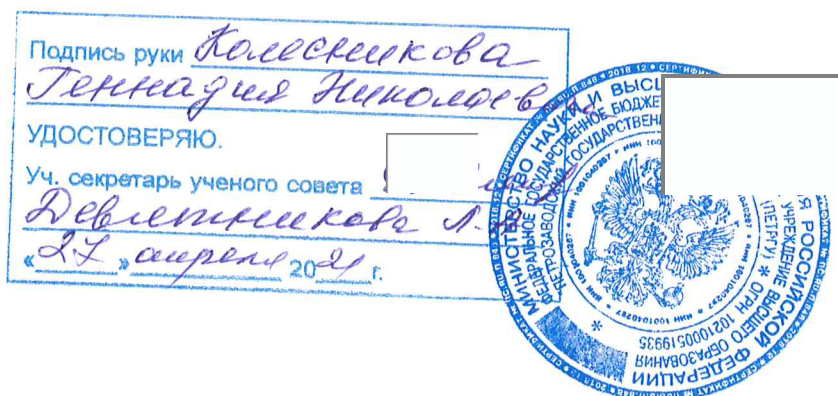 Подпись руки Колесникова
Геннадия Николаевича
УДОСТОВЕРЯЮ.
Уч. секретарь ученого совета
Девлетшикова Л.
«27» апреля 2021 г.
МИНИСТЕРСТВО НАУКИ И ВЫСШ
Я РОССИЙСКОЙ ФЕДЕРАЦИИ
ФЕДЕРАЛЬНОЕ ГОСУДАРСТВЕННОЕ БЮДЖЕТ
УЧРЕЖДЕНИЕ ВЫСШЕГО ОБРАЗОВАНИЯ
ПЕТРОЗАВОДСКИЙ ГОСУДАРСТВЕНН
(ПЕТРГУ) * ОГРН 1021000519935
* ИНН 1001040287 * ИНН 1001040287 *